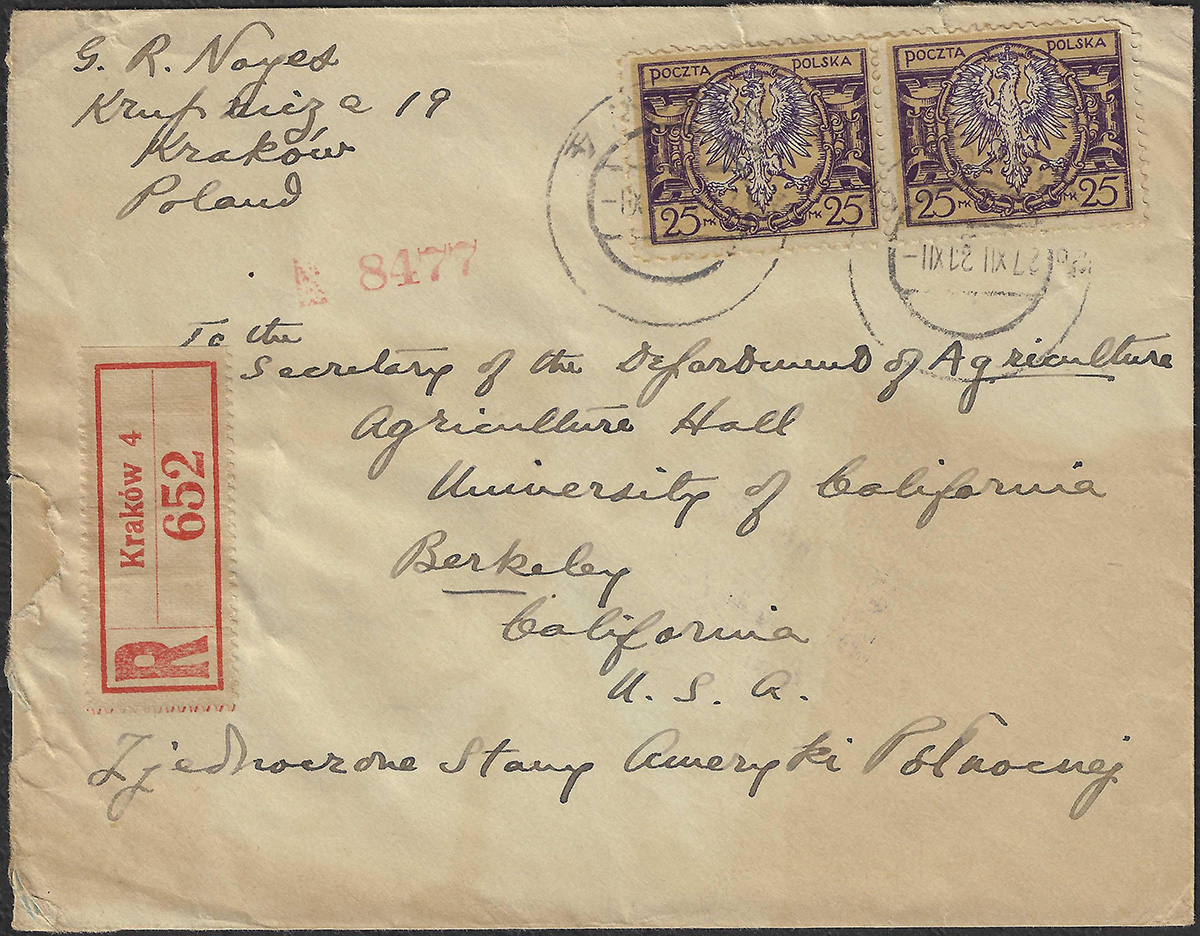 G. R. Noyes
Krupnicza 19
Kraków
Poland
POCZTA POLSKA
25 MK MK 25
POCZTA POLSKA
25 MK MK 25
8477
27 XII 21 XII
To the
Secretary of the Department of Agriculture
Agriculture Hall
University of California
Berkeley
California
U. S. A.
Zjednoczone Stany Ameryki Północnej
Kraków 4
652
R